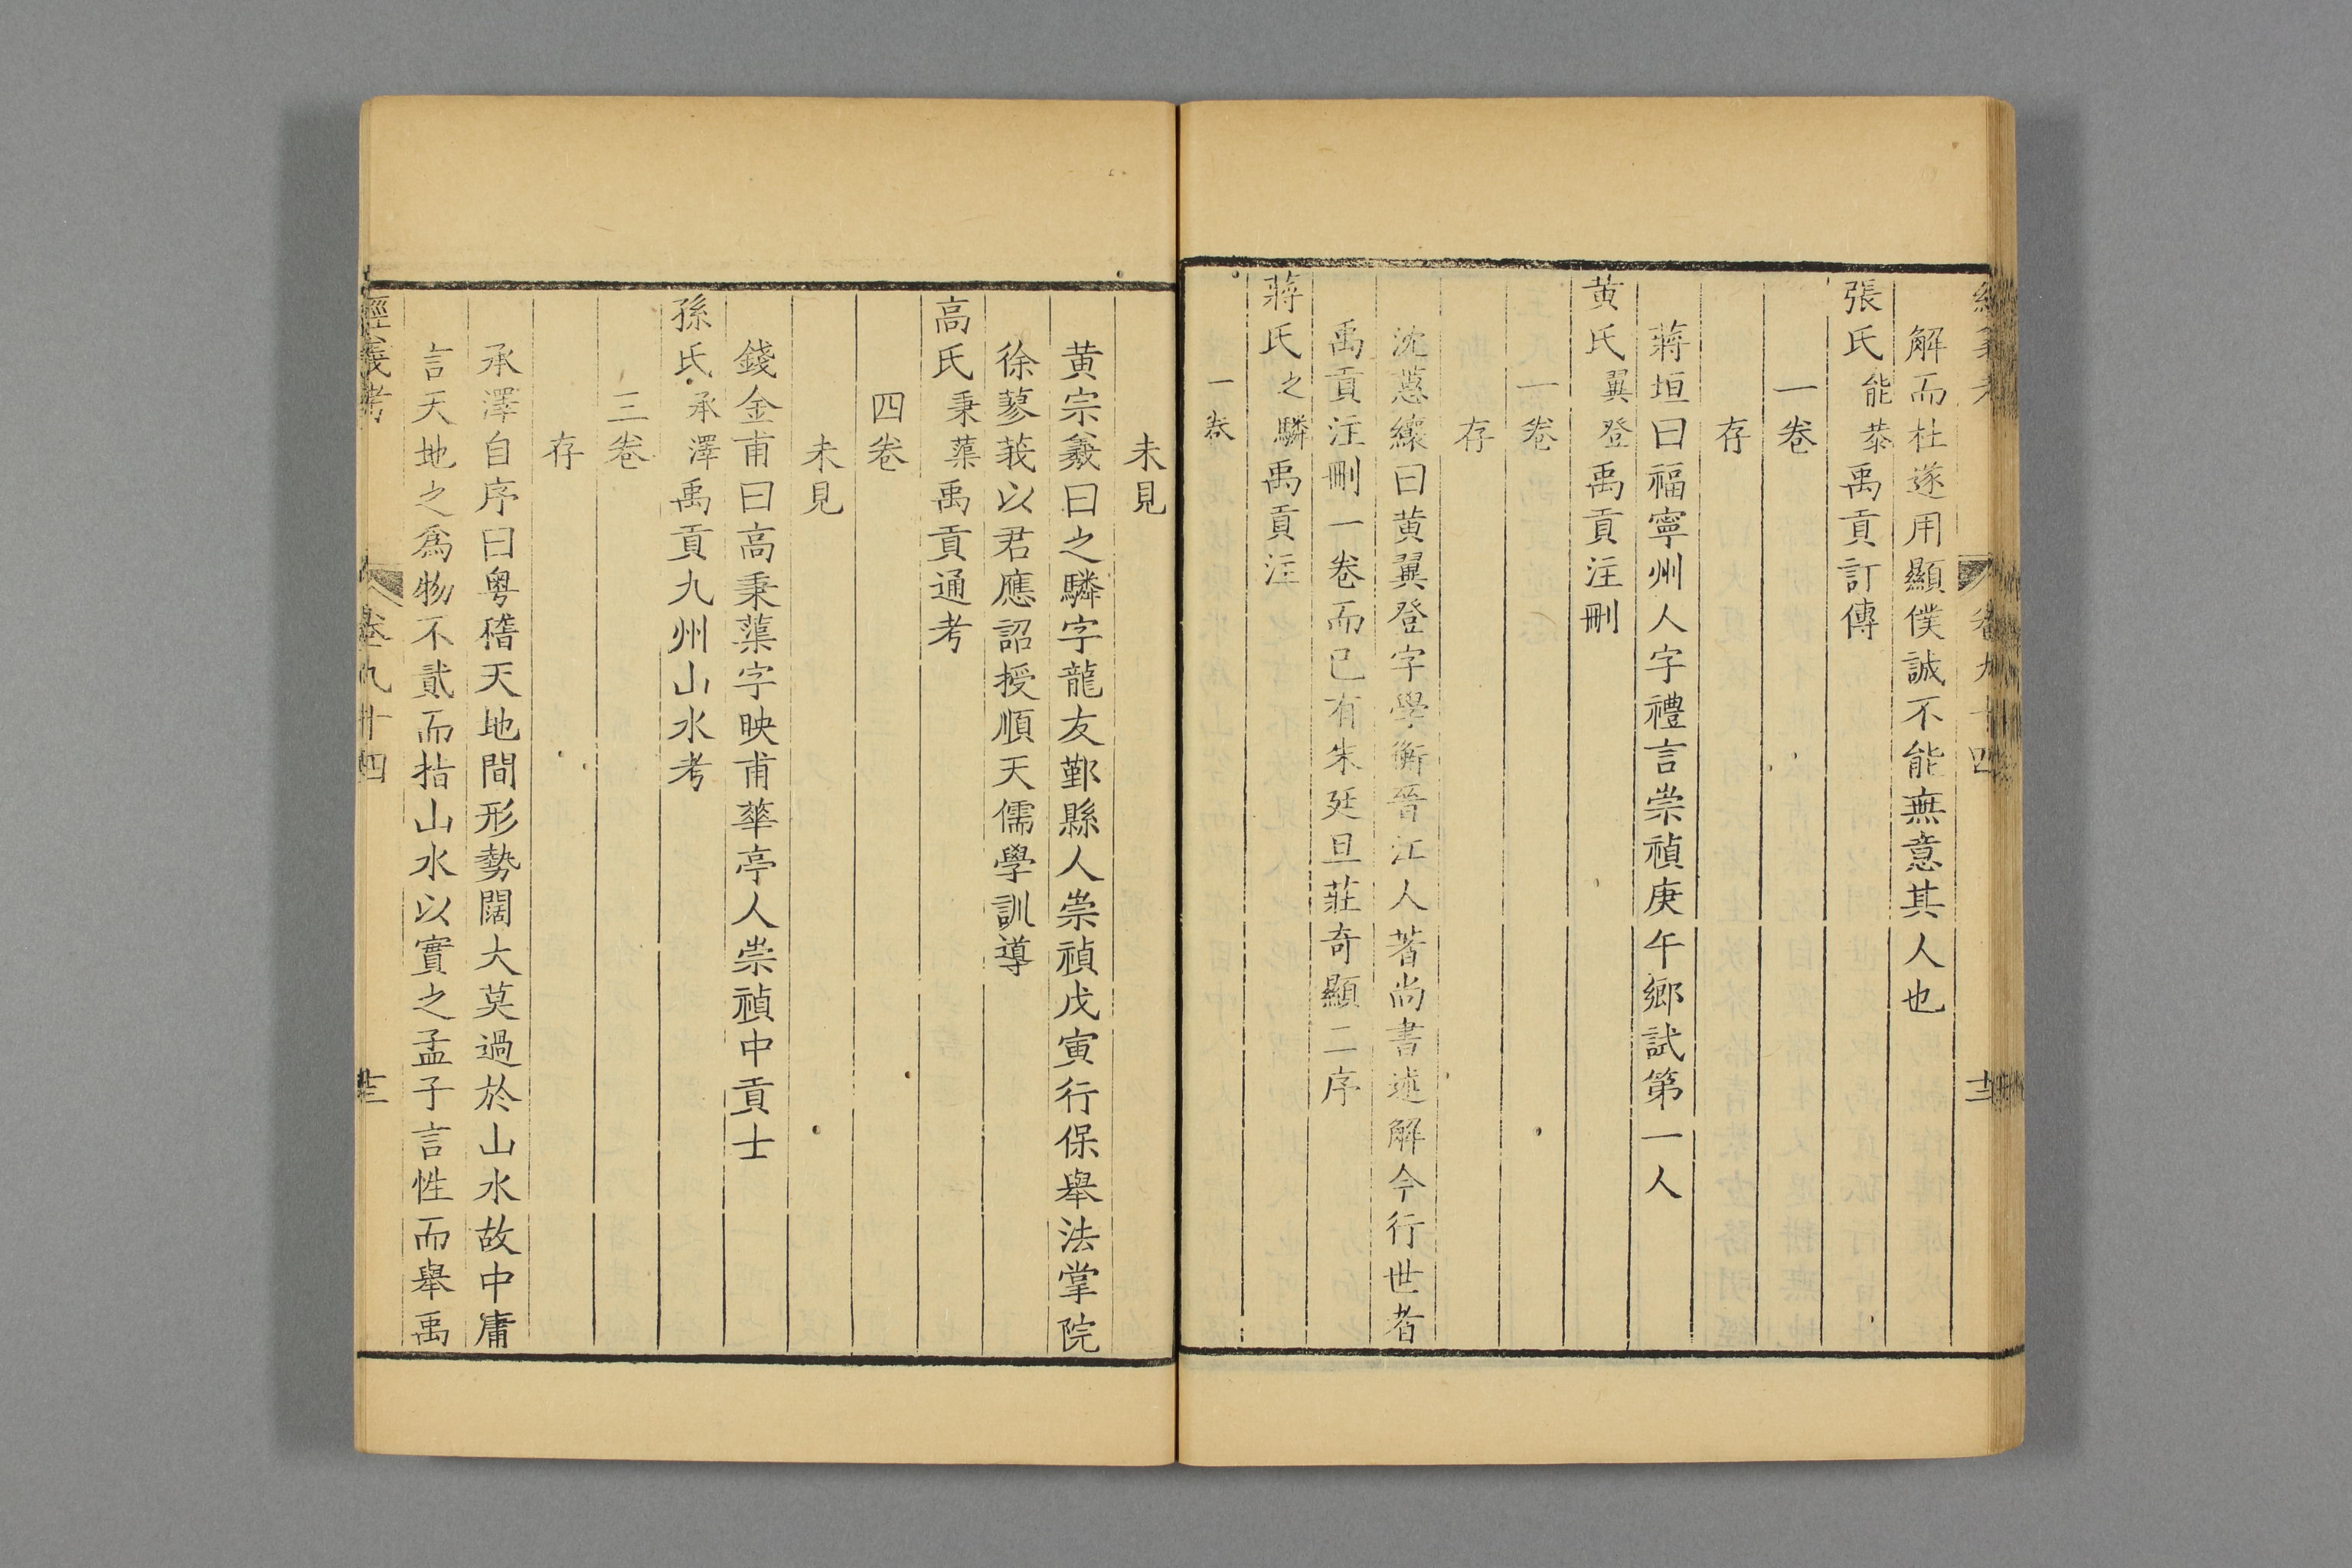 解而杜遂用顯僕誠不能無意其人也
張氏能恭禹貢訂傳
一卷
存
蔣垣曰福寧州人字禮言崇禎庚午鄉試第一人
黄氏翼登禹貢注刪
一卷
存
沈蕙纕曰黄翼登字學衡晉江人著尚書述解今行世者
禹貢注刪一卷而已有朱廷旦莊奇顯二序
蔣氏之驎禹貢注
一卷
未見
黄宗羲曰之驎字龍友鄞縣人崇禎戊寅行保舉法掌院
徐蓼莪以君應詔授順天儒學訓導
高氏秉蕖禹貢通考
四卷
未見
錢金甫曰高秉蕖字映甫華亭人崇禎中貢士
孫氏承澤禹貢九州山水考
三卷
存
承澤自序曰粤稽天地間形勢闊大莫過於山水故中庸
言天地之為物不貳而指山水以實之孟子言性而舉禹
經義考
卷九十四